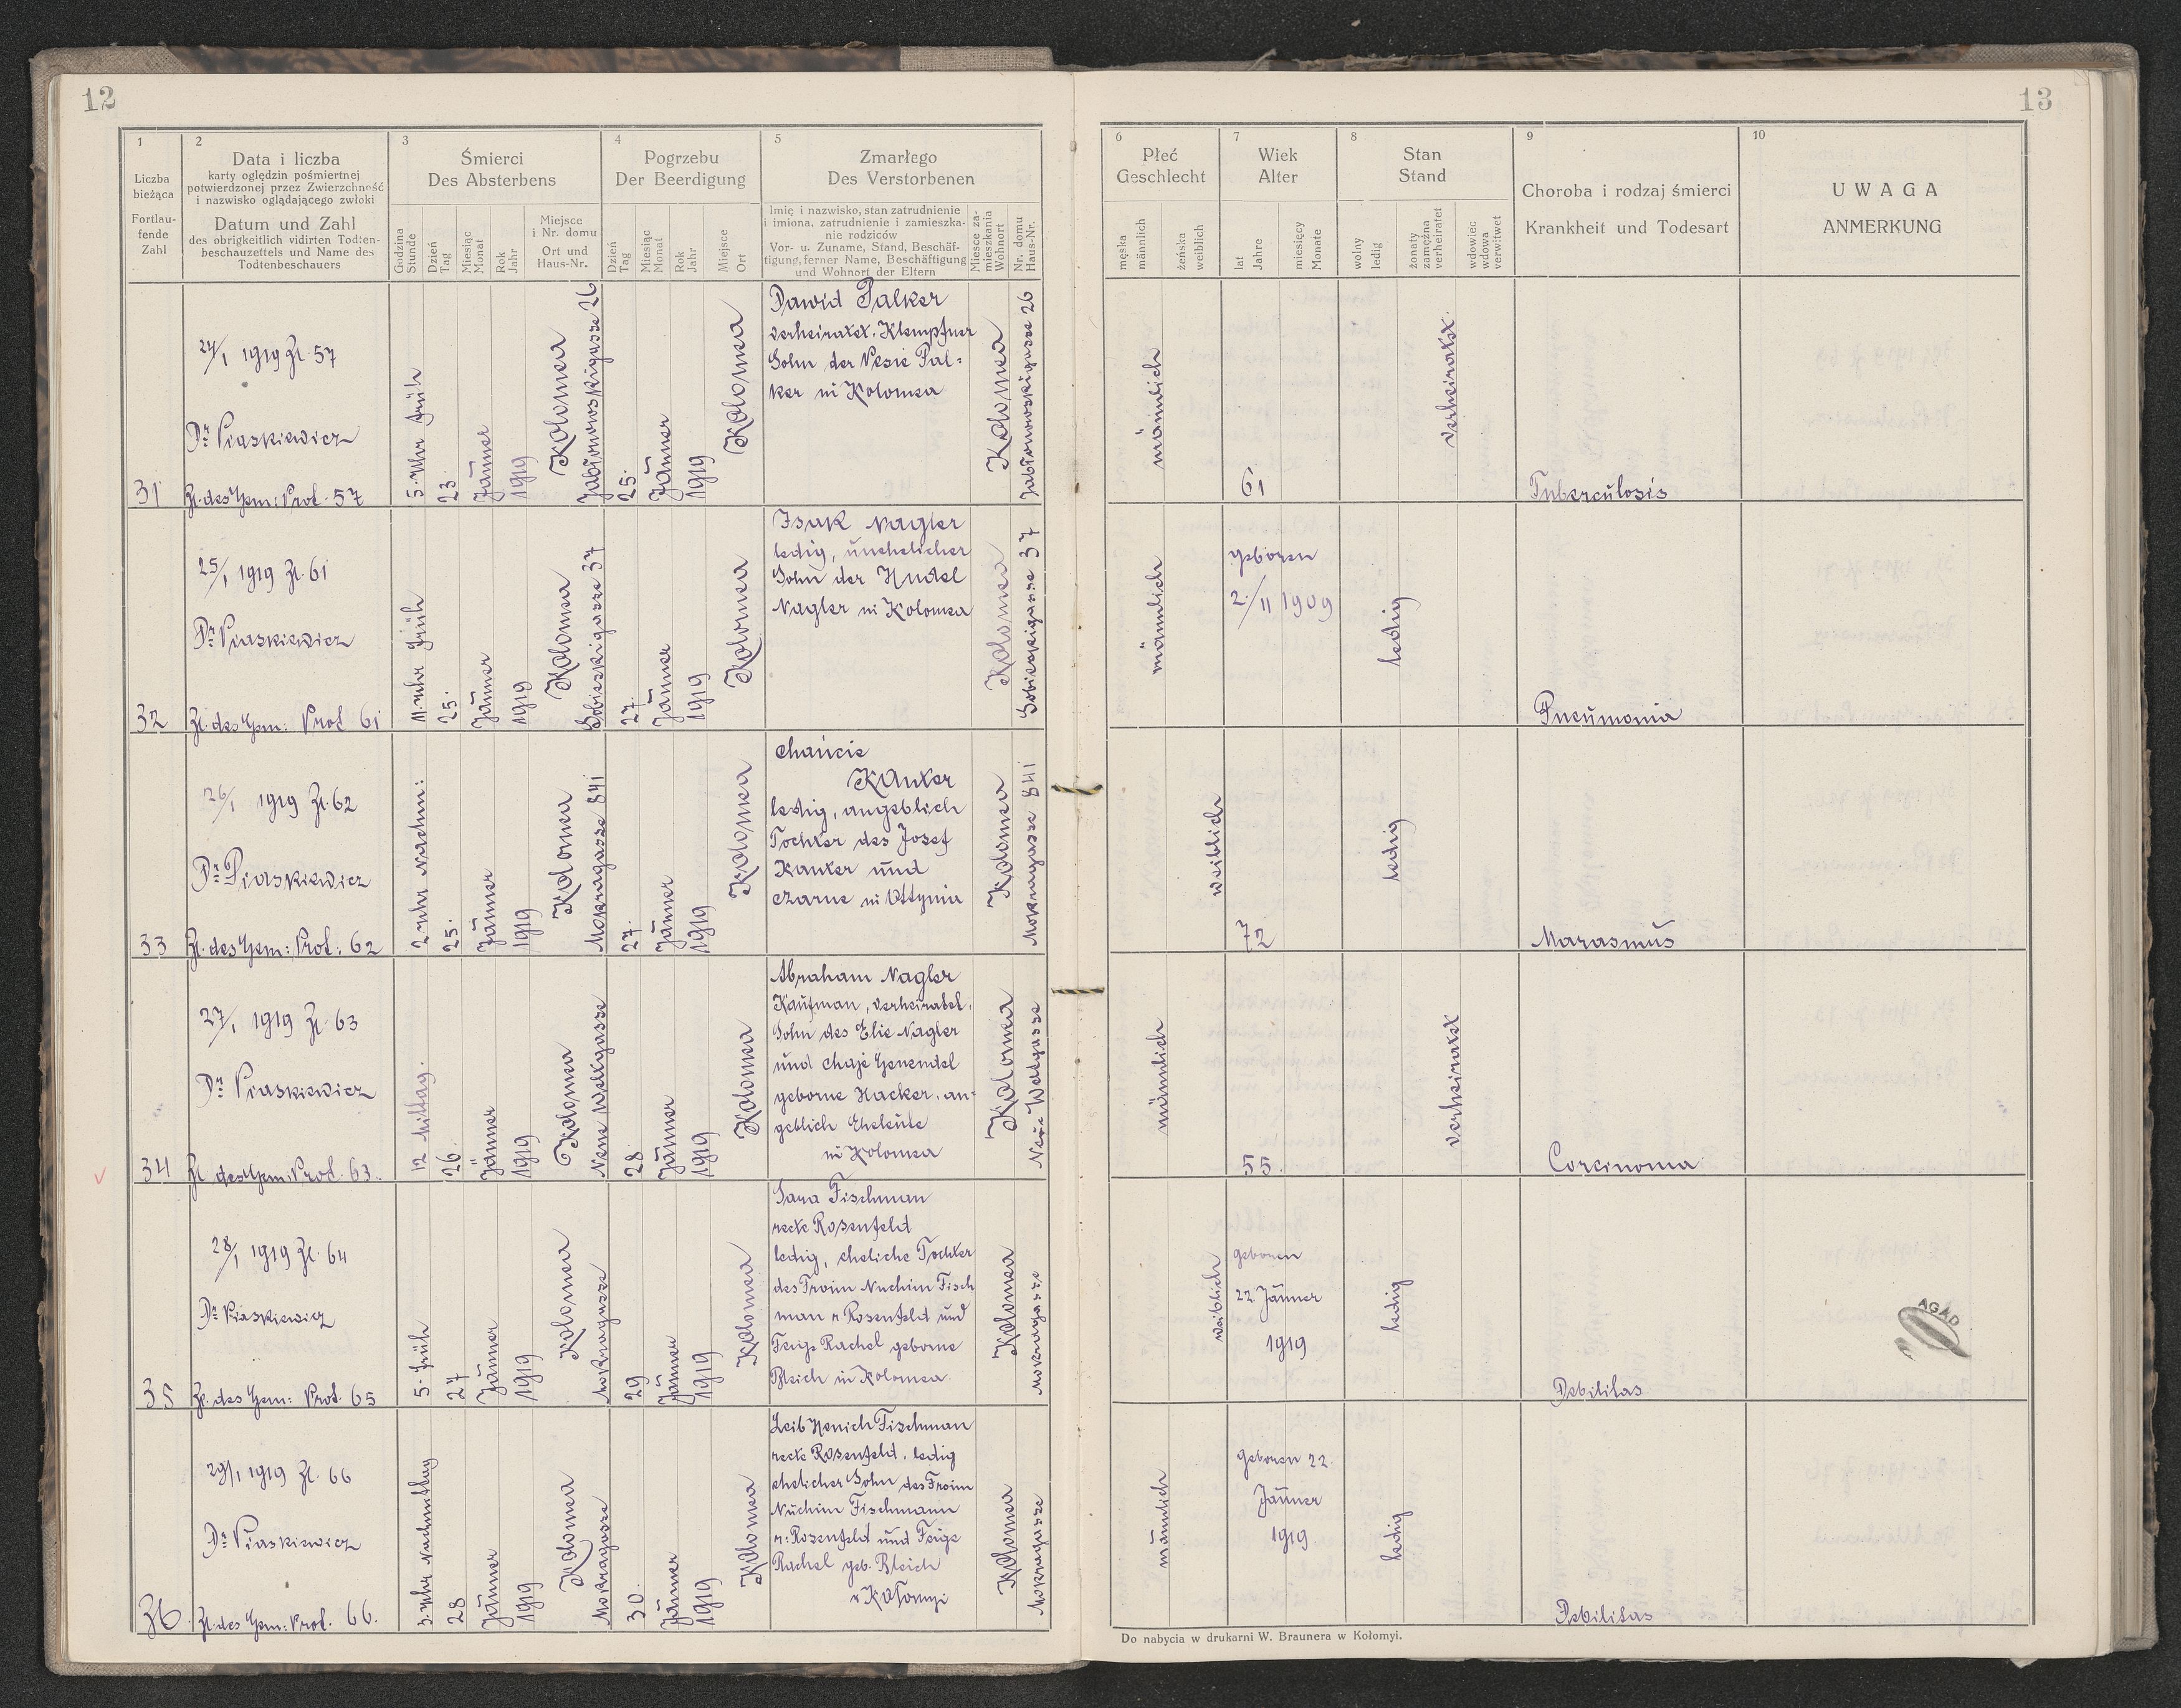 12
13
1
Liczba
bieżąca
Fortlau-
fende
Zahl
2
Data i liczba
karty oględzin pośmiertnej
potwierdzonej przez Zwierzchność
i nazwisko oglądającego zwłoki
Datum und Zahl
des obrigkeitlich vidirten Todten-
beschauzettels und Name des
Todtenbeschauers
3
Śmierci
Des Absterbens
Godzina
Stunde
Dzień
Tag
Miesiąc
Monat
Rok
Jahr
Miejsce
i Nr. domu
Ort und
Haus-Nr.
4
Pogrzebu
Der Beerdigung
Dzień
Tag
Miesiąc
Monat
Rok
Jahr
Miejsce
Ort
5
Zmarłego
Des Verstorbenen
Imię i nazwisko, stan zatrudnienie
i imiona, zatrudnienie i zamieszka-
nie rodziców
Vor- u. Zuname, Stand, Beschäf-
tigung, ferner Name, Beschäftigung
und Wohnort der Eltern
Miesce za-
mieszkania
Wohnort
Nr. domu
Haus-Nr.
6
Płeć
Geschlecht
męska
männlich
żeńska
weiblich
7
Wiek
Alter
lat
Jahre
miesięcy
Monate
8
Stan
Stand
wolny
ledig
żonaty
zamężna
verheiratet
wdowiec
wdowa
verwitwet
9
Choroba i rodzaj śmierci
Krankheit und Todesart
10
UWAGA
ANMERKUNG
31
24/1 1919 Zl. 57
Dr Piaskiewicz
Zl. des Gem: Prot. 57
5. Uhr früh
23.
Jänner
1919
Kolomea
Jabłonowskigasse 26
25.
Jänner
1919
Kolomea
Dawid Palker
verheiratet. Klempfner
Sohn der Nesie Pal-
ker in Kolomea
Kolomea
Jabłonowskigasse 26
männlich
61
verheiratet.
Tuberculosis
32
25/1 1919 Zl. 61
Dr Piaskiewicz
Zl. des Gem: Prot 61
11. Uhr früh
25.
Jänner
1919
Kolomea
Sobieskigasse 37
27.
Jänner
1919
Kolomea
Isak Nagler
ledig, unehelicher
Sohn der Hudel
Nagler in Kolomea
Kolomea
Sobieskigasse 37
männlich
geboren
2./11 1909
ledig
Pneumonia
33
26/1 1919 Zl. 62
Dr Piaskiewicz
Zl. des Gem: Prot: 62
2 Uhr Nachm:
25.
Jänner
1919
Kolomea
Mokragasse 841
27.
Jänner
1919
Kolomea
Chancie
Kanter
ledig, angeblich
Tochter des Josef
Kanter und
Czarne in Ottynia
Kolomea
Mokragasse 841
weiblich
72
ledig
Marasmus
34
27/1 1919 Zl. 63
Dr Piaskiewicz
Zl. des Gem: Prot. 63.
12 Mittag.
26.
Jänner
1919
Kolomea
Neue Weltgasse
28.
Jänner
1919
Kolomea
Abraham Nagler
Kaufman, verheiratet.
Sohn des Elie Nagler
und Chaje Genendel
geborne Hacker, an-
geblich Eheleute
in Kolomea
Kolomea
Neue Weltgasse
männlich
55.
verheiratet
Corcinoma
35
28/1 1919 Zl. 64
Dr Piaskiewicz
Zl. des Gem: Prot. 65
5. früh
27
Jänner
1919
Kolomea
Mokragasse
29
Jänner
1919
Kolomea
Sara Fischman
recte Rosenfeld
ledig, eheliche Tochter
des Froim Nuchim Fisch
man r Rosenfeld und
Feige Rachel geborne
Bleich in Kolomea
Kolomea
Mokragasse
weiblich
geboren
22. Jänner
1919
ledig
Debilitas
AGAD
36.
29/1 1919 Zl. 66
Dr Piaskiewicz
Zl. des Gem: Prot. 66.
3. Uhr Nachmittag
28
Jänner
1919
Kolomea
Mokragasse
30.
Jänner
1919
Kolomea
Leib Henich Fischman
recte Rosenfeld. ledig
ehelicher Sohn des Froim
Nuchim Fischmann
r: Rosenfeld und Feige
Rachel geb. Bleich
w Kołomyi
Kolomea
Mokragasse
männlich
geboren 22.
Jänner
1919
ledig
Debilitas
Do nabycia w drukarni W. Braunera w Kołomyi.